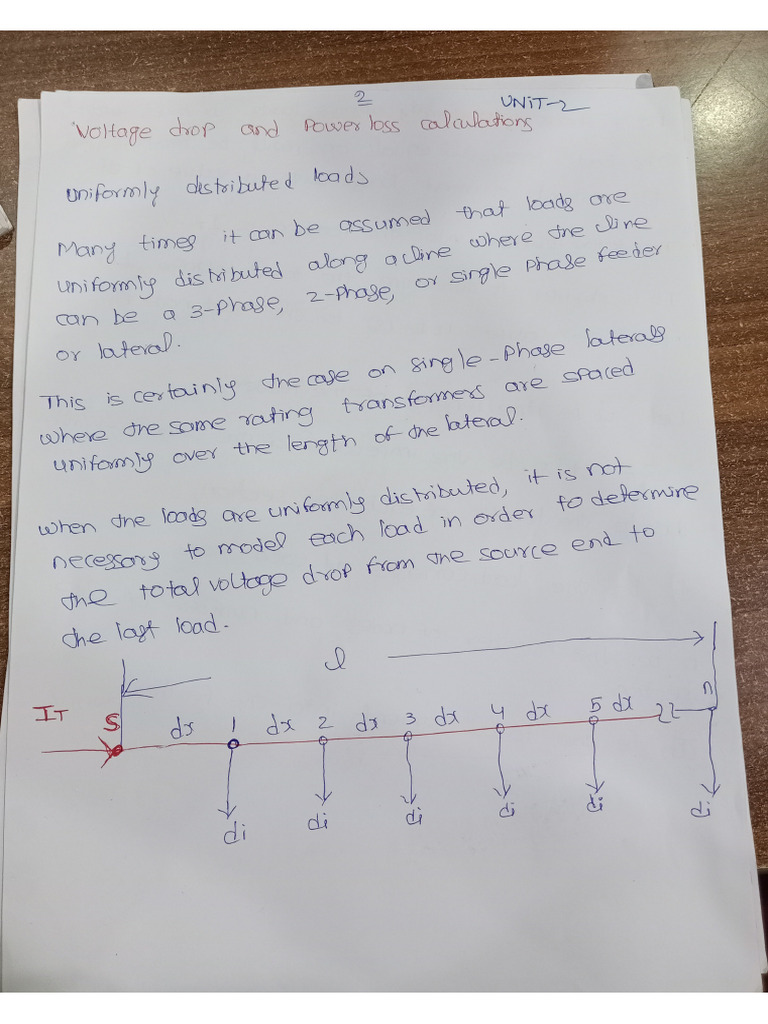 2
UNIT-2
Voltage drop and Power loss calculations
Uniformly distributed loads
Many times it can be assumed that loads are
uniformly distributed along a line where the line
can be a 3-phase, 2-phase, or single phase feeder
or lateral.
This is certainly the case on single-phase laterals
where the same rating transformers are spaced
uniformly over the length of the lateral.
when the loads are uniformly distributed, it is not
necessary to model each load in order to determine
the total voltage drop from the source end to
the last load.
l
IT S dx 1 dx 2 dx 3 dx 4 dx 5 dx n
di di di di di di